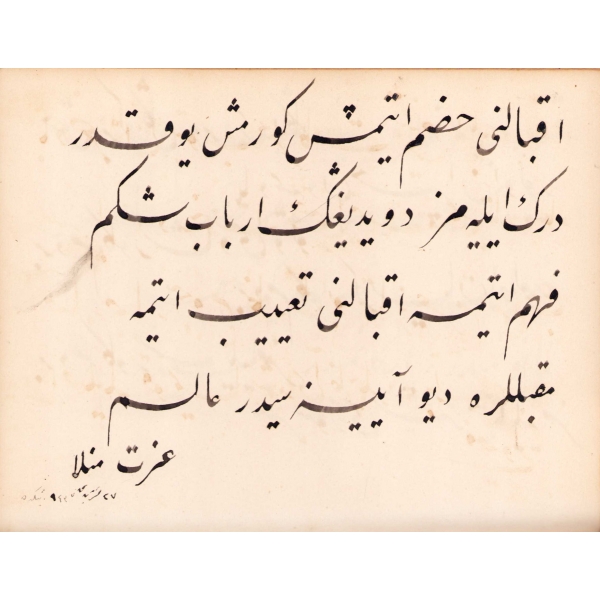 اقبالنی حضم ایتمش كورمش یوقدر
درك ایلیه مز دویدیغڭ ارباب شكم
فهم ایتمسه اقبالنی تعییب ایتمه
مقبللره دیو آیینه سیدر عالم
عزت منلا